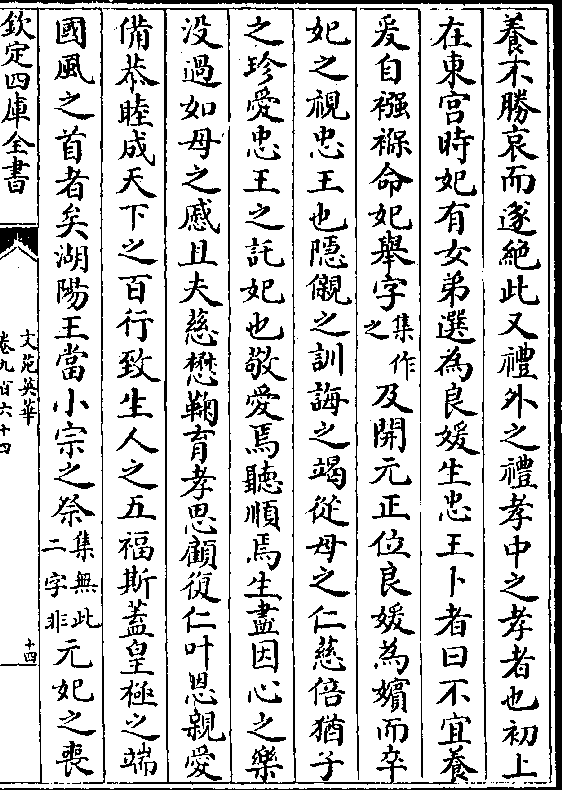 養不勝哀而遂絶此又禮外之禮孝中之孝者也初上
在東宫時妃有女弟選為良媛生忠王卜者曰不宜養
爰自襁褓命妃舉字集作之及開元正位良媛為嬪而卒
妃之視忠王也隱儭之訓誨之竭從母之仁慈倍猶子
之珍愛忠王之託妃也敬愛焉聽順焉生盡因心之樂
没過如母之慼且夫慈懋鞠育孝思顧復仁叶恩親愛
備恭睦成天下之百行致生人之五福斯蓋皇極之端
國風之首者矣湖陽王當小宗之祭集無此二字非元妃之喪
欽定四庫全書
文苑英華
卷九百六十四
十四